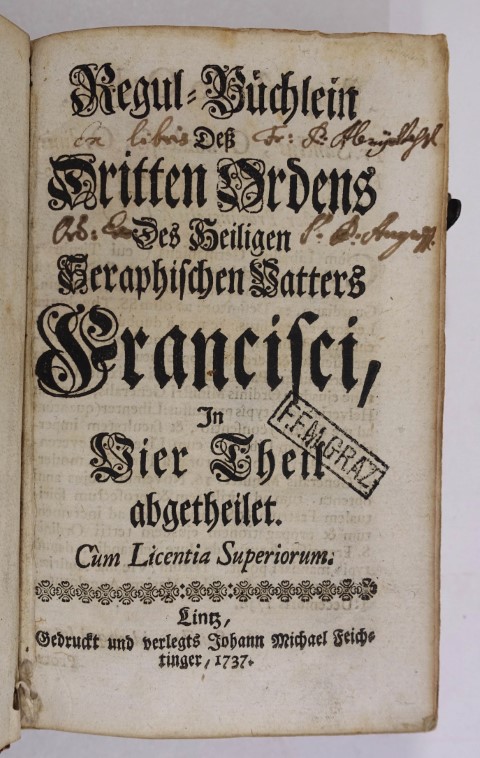 Regul-Büchlein
ex libris Deß Fr: P.
Dritten Ordens
Des Heiligen
Seraphischen Vatters
Francisci,
In
Vier Theil
F.F.M. GRAZ
abgetheilet.
Cùm Licentia Superiorum.
Lintz,
Gedruckt und verlegts Johann Michael Feich-
tinger, 1737.